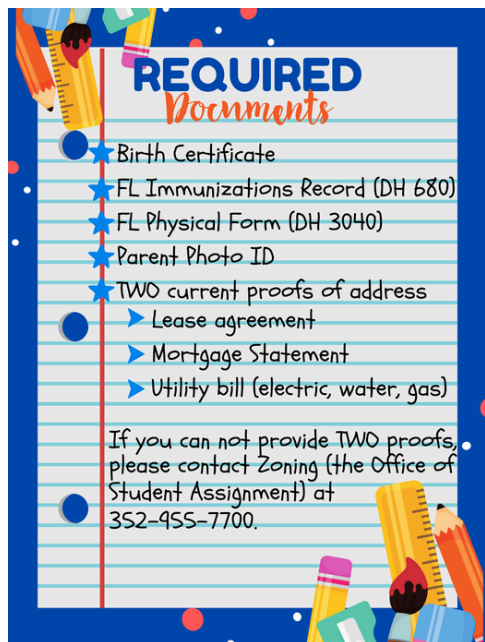 REQUIRED
Documents
Birth Certificate
FL Immunizations Record (DH 680)
FL Physical Form (DH 3040)
Parent Photo ID
TWO current proofs of address
Lease agreement
Mortgage Statement
Utility bill (electric, water, gas)
If you can not provide TWO proofs,
please contact Zoning (the Office of
Student Assignment) at
352-955-7700.